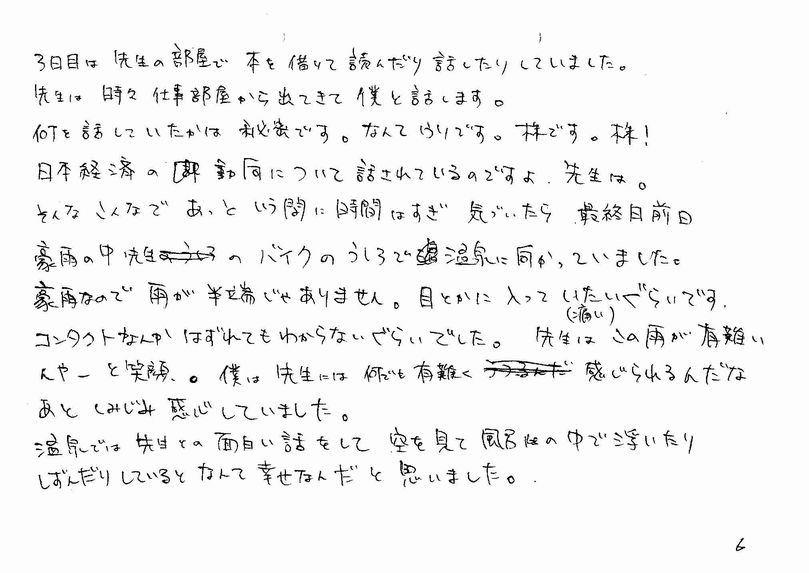 3日目は先生の部屋で本を借りて読んだり話したりしていました。
先生は時々仕事部屋から出てきて僕と話します。
何を話していたかは秘密です。なんてウソです。株です。株!
日本経済の動向について話されているのですよ、先生は。
そんなこんなであっという間に時間はすぎ気づいたら最終日前日
豪雨の中先生のバイクのうしろで温泉に向かっていました。
豪雨なので雨が半端じゃありません。目とかに入っていたいぐらいです。
(痛い)
コンタクトなんかはずれてもわからないぐらいでした。先生はこの雨が有難い
んやーと笑顔、。僕は先生には何でも有難く感じられるんだな
あとしみじみ感心していました。
温泉では先生との面白い話をして空を見て風呂の中で浮いたり
しずんだりしているとなんて幸せなんだと思いました。
6